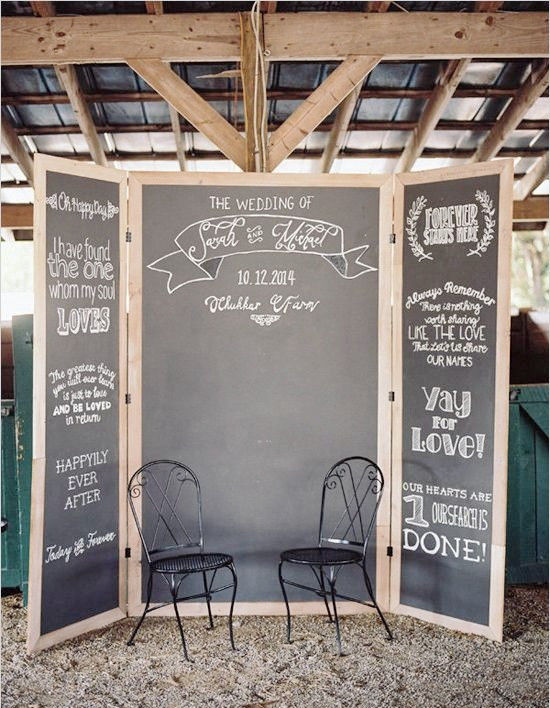 Oh Happy Day
I have found
the one
whom my soul
LOVES
The greatest thing
you will ever learn
is just to love
AND BE LOVED
in return
HAPPILY
EVER
AFTER
Today & Forever
THE WEDDING OF
Sarah AND Michael
10.12.2014
Chukkar Farm
FOREVER
STARTS HERE
Always Remember
There is nothing
worth sharing
LIKE THE LOVE
That Let's Us Share
OUR NAMES
YAY
FOR
LOVE!
OUR HEARTS ARE
1 OUR SEARCH IS
DONE!